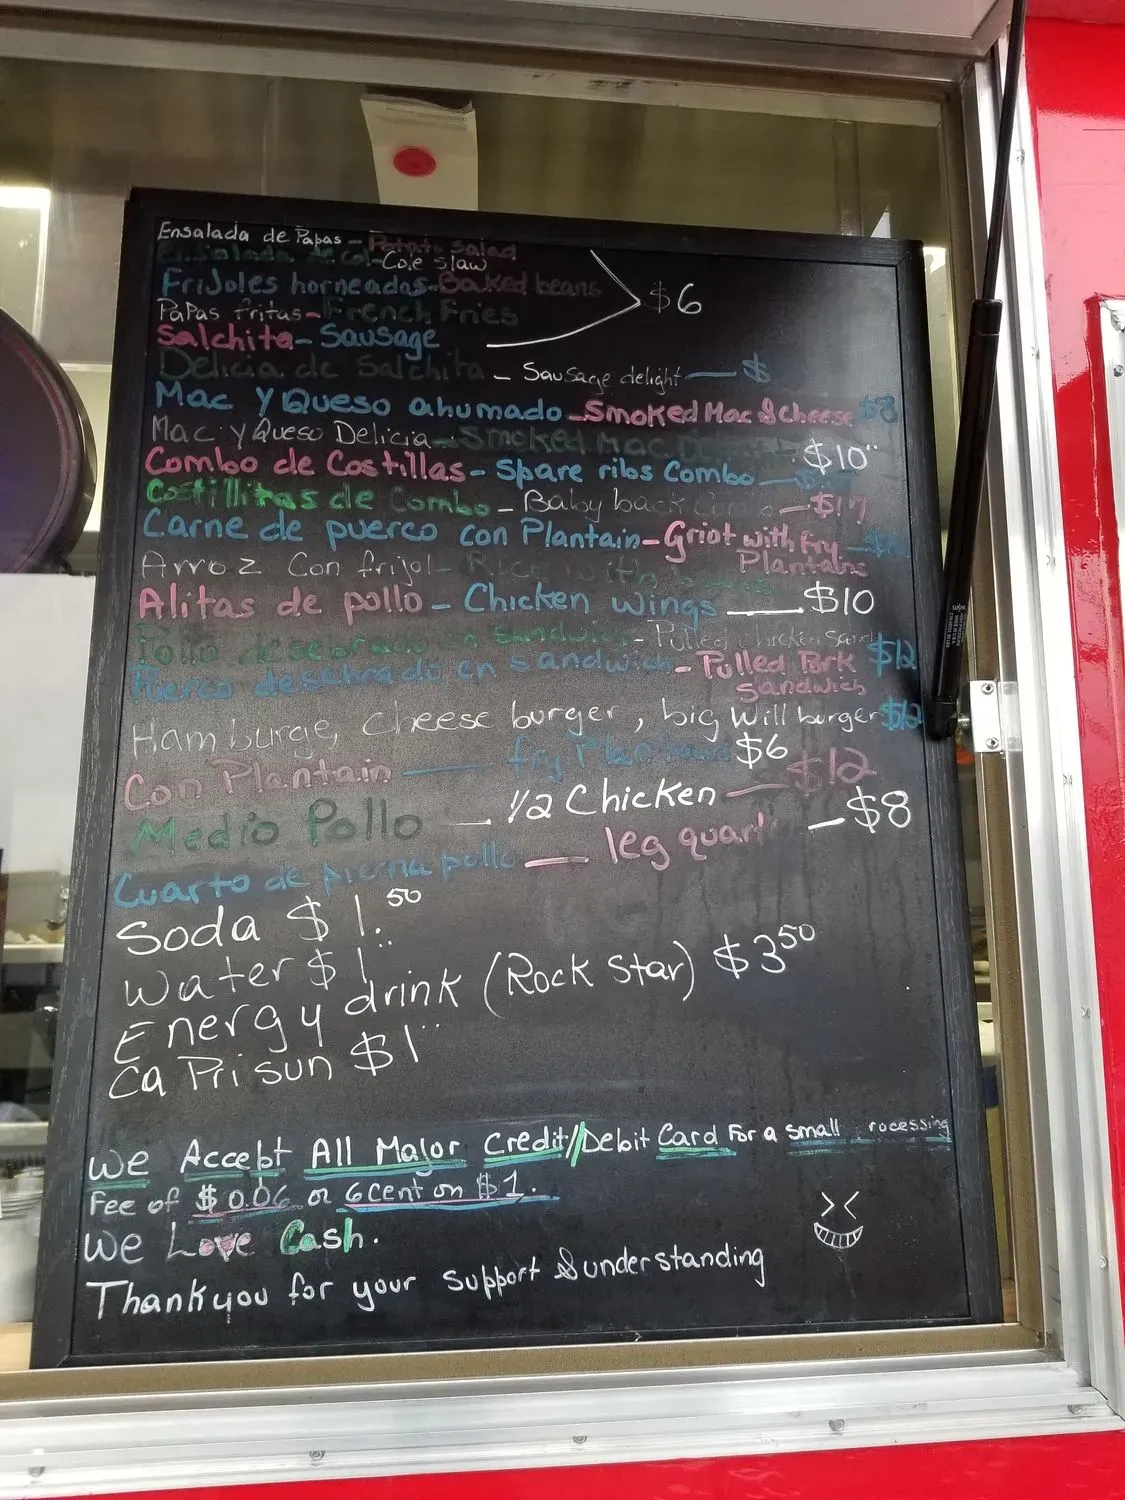 Ensalada de Papas - Potato Salad
Ensalada de col - Cole slaw
FriJoles horneadas - Baked beans
$6
PaPas fritas - French Fries
Salchita - Sausage
Delicia de Salchita - Sausage delight — $
Mac Y Queso ahumado - Smoked Mac & cheese $8
Mac y Queso Delicia - Smoked Mac
$10
Combo de Costillas - Spare ribs Combo
Costillitas de Combo - Baby back — $17
Carne de puerco con Plantain - Griot with Fry
Plantains
Arroz Con frijol - Rice with
Alitas de pollo - Chicken wings — $10
Pollo desebrado en sandwich - Pulled chicken sand
Puerco desebrado en sandwich - Pulled Pork $12
sandwich
Hamburge, cheese burger, big Will burger
Con Plantain — fry Plantain $6
Medio Pollo — 1/2 Chicken — $12
Cuarto de pierna pollo — leg quart — $8
Soda $1.50
Water $1
Energy drink (Rock Star) $3 50
Ca Pri sun $1
We Accept All Major Credit/Debit Card For a small rocessing
Fee of $0.06 or 6 cent on $1.
We Love Cash.
Thank you for your support & understanding